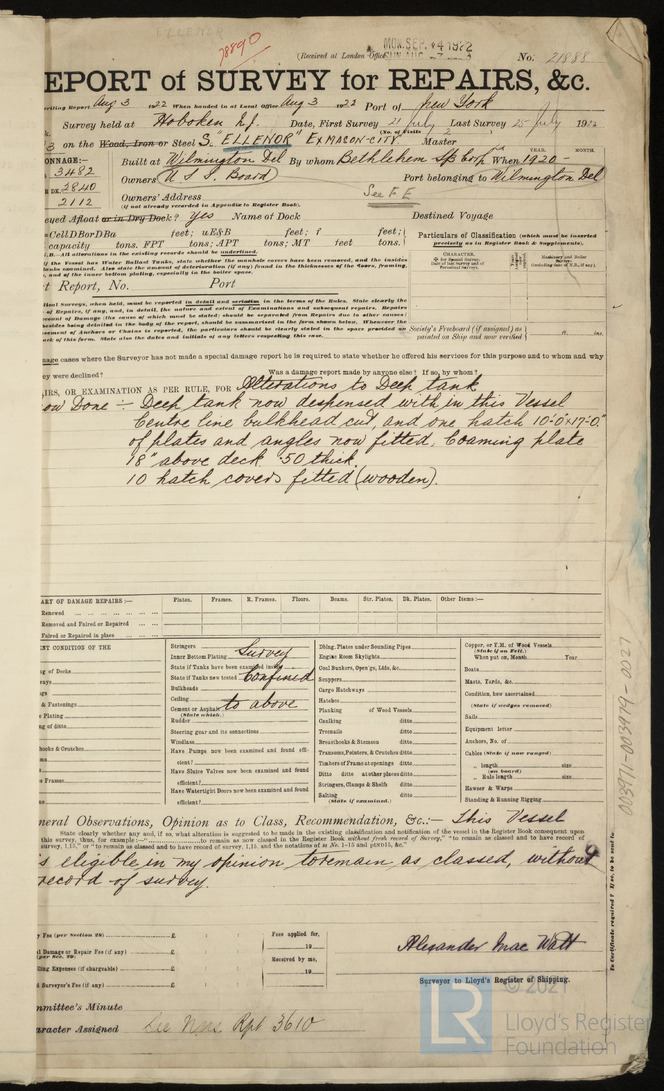 ELLENOR
78890
(Received at London Office MON. SEP. 4 1922
No. 21888
EPORT of SURVEY for REPAIRS, &c.
riting Report Aug 3 1922 When handed in at Local Office Aug 3 1922 Port of New York
Survey held at Hoboken N.J. Date, First Survey 21 July Last Survey 25 July 1922
(No. of Visits 2)
on the Wood, Iron or Steel S. "ELLENOR" Ex MASON-CITY Master
YEAR. MONTH.
ONNAGE:— Built at Wilmington Del By whom Bethlehem Sp Corp When 1920 -
3482
Owners U S S. Board Port belonging to Wilmington Del
2840
2112
Owners' Address See F E
(if not already recorded in Appendix to Register Book).
eyed Afloat or in Dry Dock? Yes Name of Dock Destined Voyage
=CellDBorDBa feet; uE&B feet; f feet;
capacity tons. FPT tons; APT tons; MT feet tons.
Particulars of Classification (which must be inserted
precisely as in Register Book & Supplements).
N.B.—All alterations in the existing records should be underlined.
if the Vessel has Water Ballast Tanks, state whether the manhole covers have been removed, and the insides
anks examined. Also state the amount of deterioration (if any) found in the thicknesses of the floors, framing,
, and of the inner bottom plating, especially in the boiler space.
CHARACTER.
t Report, No. Port
ecount of Damage (the cause of which must be stated) should be separated from Repairs due to other causes;
ark of this form. State also the dates and initials of any letters respecting this case.
Society's Freeboard (if assigned) as
painted on Ship and now verified
mage cases where the Surveyor has not made a special damage report he is required to state whether he offered his services for this purpose and to whom and why
ey were declined? Was a damage report made by anyone else? If so, by whom?
IRS, OR EXAMINATION AS PER RULE, FOR Alterations to Deep tank
ow Done :- Deep tank now despensed with in this Vessel
Centre line bulkhead cut, and one hatch 10'-0" x 17'-0"
of plates and angles now fitted, Coaming plate
18" above deck .50 thick.
10 hatch covers fitted (wooden).
ARY OF DAMAGE REPAIRS:— Plates. Frames. R. Frames. Floors. Beams. Str. Plates. Dk. Plates. Other Items:—
Renewed
Removed and Faired or Repaired
Faired or Repaired in place
NT CONDITION OF THE
ng of Decks
ways
& Fastenings
e Plating
ng of ditto
hooks & Crutches
e Frames
Stringers
Inner Bottom Plating Survey
State if Tanks have been examined inside
State if Tanks now tested Confined
Bulkheads
Ceiling
Cement or Asphalt to above
(State which.)
Rudder
Steering gear and its connections
Windlass
Have Pumps now been examined and found effi-
cient?
Have Sluice Valves now been examined and found
efficient?
Have Watertight Doors now been examined and found
efficient?
Dblng. Plates under Sounding Pipes
Engine Room Skylights
Coal Bunkers, Open'gs, Lids, &c.
Scuppers
Cargo Hatchways
Hatches
Planking of Wood Vessels
Caulking ditto
Treenails ditto
Breasthooks & Stemson ditto
Transoms, Pointers, & Crutches ditto
Timbers of Frame at openings ditto
Ditto ditto at other places ditto
Stringers, Clamps & Shelfs ditto
Salting ditto
(State if examined.)
Copper, or Y.M. of Wood Vessels
(State if on Felt.)
When put on, Month Year
Boats
Masts, Yards, &c.
Condition, how ascertained
(State if wedges removed)
Sails
Equipment letter
Anchors, No. of
Cables (State if now ranged)
" length size
(on board)
" Rule length size
Hawser & Warps
Standing & Running Rigging
neral Observations, Opinion as to Class, Recommendation, &c.:— This Vessel
State clearly whether any and, if so, what alteration is suggested to be made in the existing classification and notification of the vessel in the Register Book consequent upon
this survey, thus, for example:— "to remain as now classed in the Register Book without fresh record of Survey," "to remain as classed and to have record of
survey, 1,15," or "to remain as classed and to have record of survey, 1,15, and the notations of
s eligible in my opinion to remain as classed, without
record of survey.
y Fee (per Section 28) £
l Damage or Repair Fee (if any) £
(per Sec. 29)
lling Expenses (if chargeable) £
d Surveyor's Fee (if any) £
Fees applied for,
19
Received by me,
19
Alexander Mac Watt
Surveyor to Lloyd's Register of Shipping.
mmittee's Minute
aracter Assigned See Rpt 3610
Is Certificate required? If so, to be sent to
003971-003979-0027
LR
© 2021
Lloyd's Register
Foundation